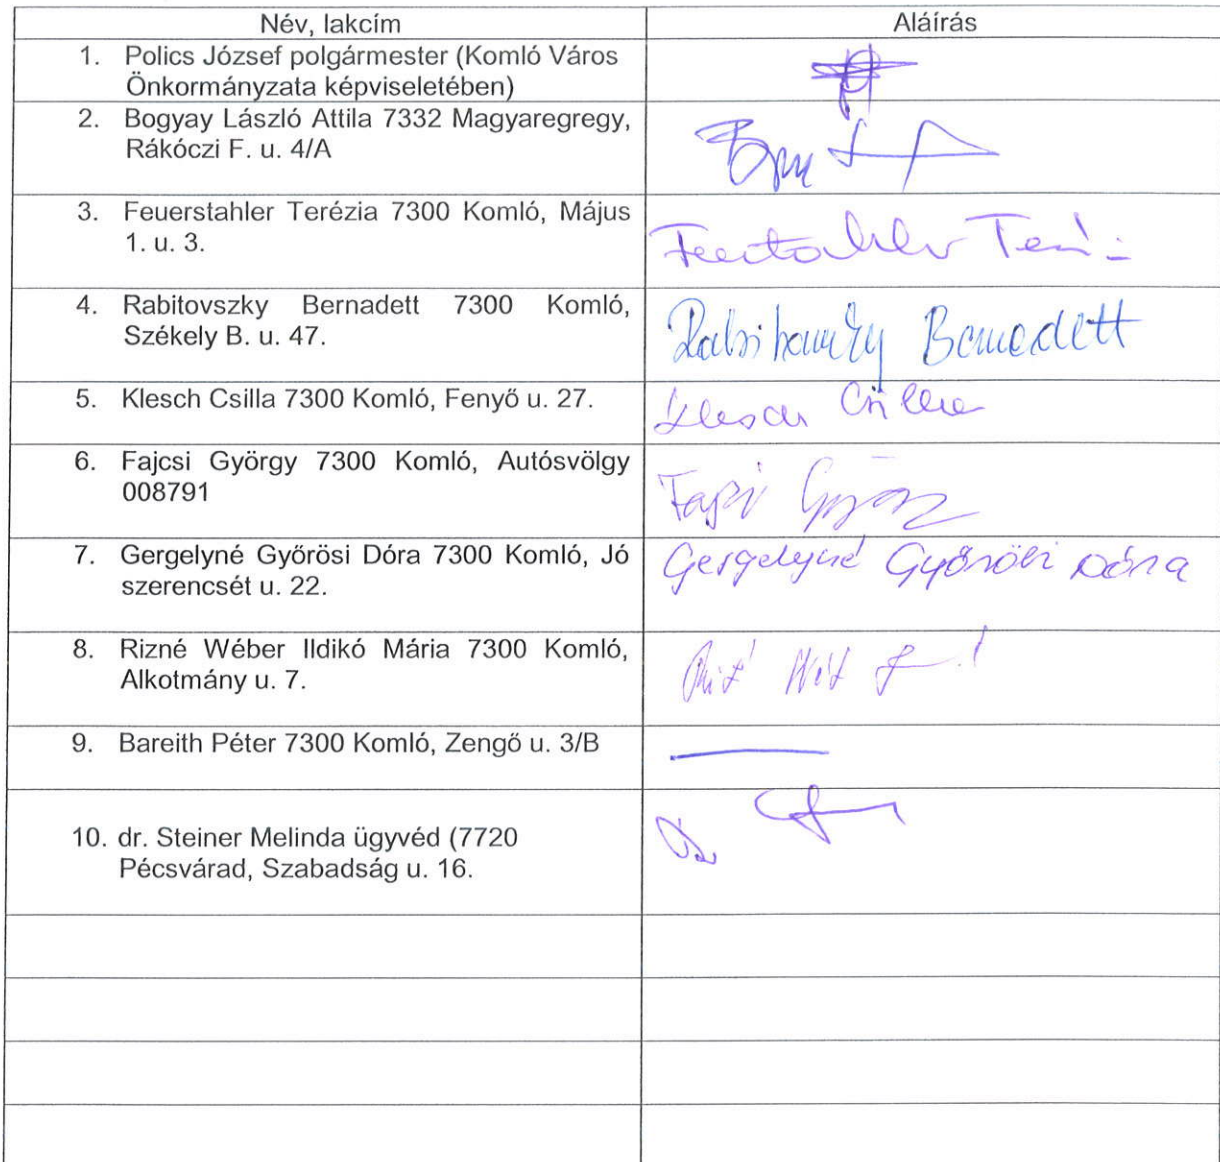 Név, lakcím
Aláírás
1. Polics József polgármester (Komló Város
Önkormányzata képviseletében)
2. Bogyay László Attila 7332 Magyaregregy,
Rákóczi F. u. 4/A
3. Feuerstahler Terézia 7300 Komló, Május
1. u. 3.
4. Rabitovszky Bernadett 7300 Komló,
Székely B. u. 47.
Bernadett
5. Klesch Csilla 7300 Komló, Fenyő u. 27.
Klesch Csilla
6. Fajcsi György 7300 Komló, Autósvölgy
008791
7. Gergelyné Győrösi Dóra 7300 Komló, Jó
szerencsét u. 22.
Gergelyné Győrösi Dóra
8. Rizné Wéber Ildikó Mária 7300 Komló,
Alkotmány u. 7.
9. Bareith Péter 7300 Komló, Zengő u. 3/B
10. dr. Steiner Melinda ügyvéd (7720
Pécsvárad, Szabadság u. 16.